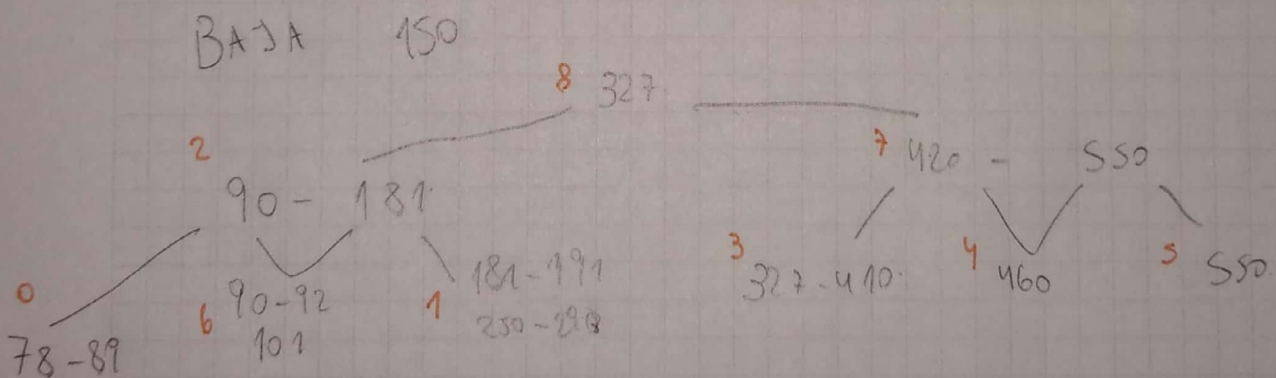 BAJA 150
8 327
2 90 - 181
7 420 - 550
0 78-89
6 90-92
101
1 181-191
3 327-410
4 460
5 550